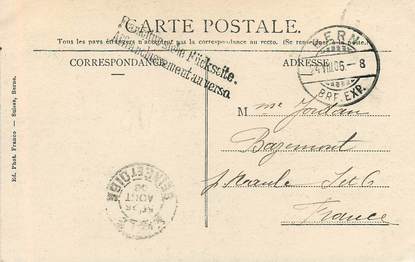 CARTE POSTALE.
Tous les pays étrangers n'acceptent pas la correspondance au recto. (Se renseigner à la poste).
CORRESPONDANCE
ADRESSE
Frankaturseite Rückseite.
Affranchissement au verso.
BERN
VIII.06.-8
BRF. EXP.
Mme Jordan
Bazemont
France
SEINE-ET-OISE
AOUT
06
Ed. Phot. Franco-Suisse, Berne.